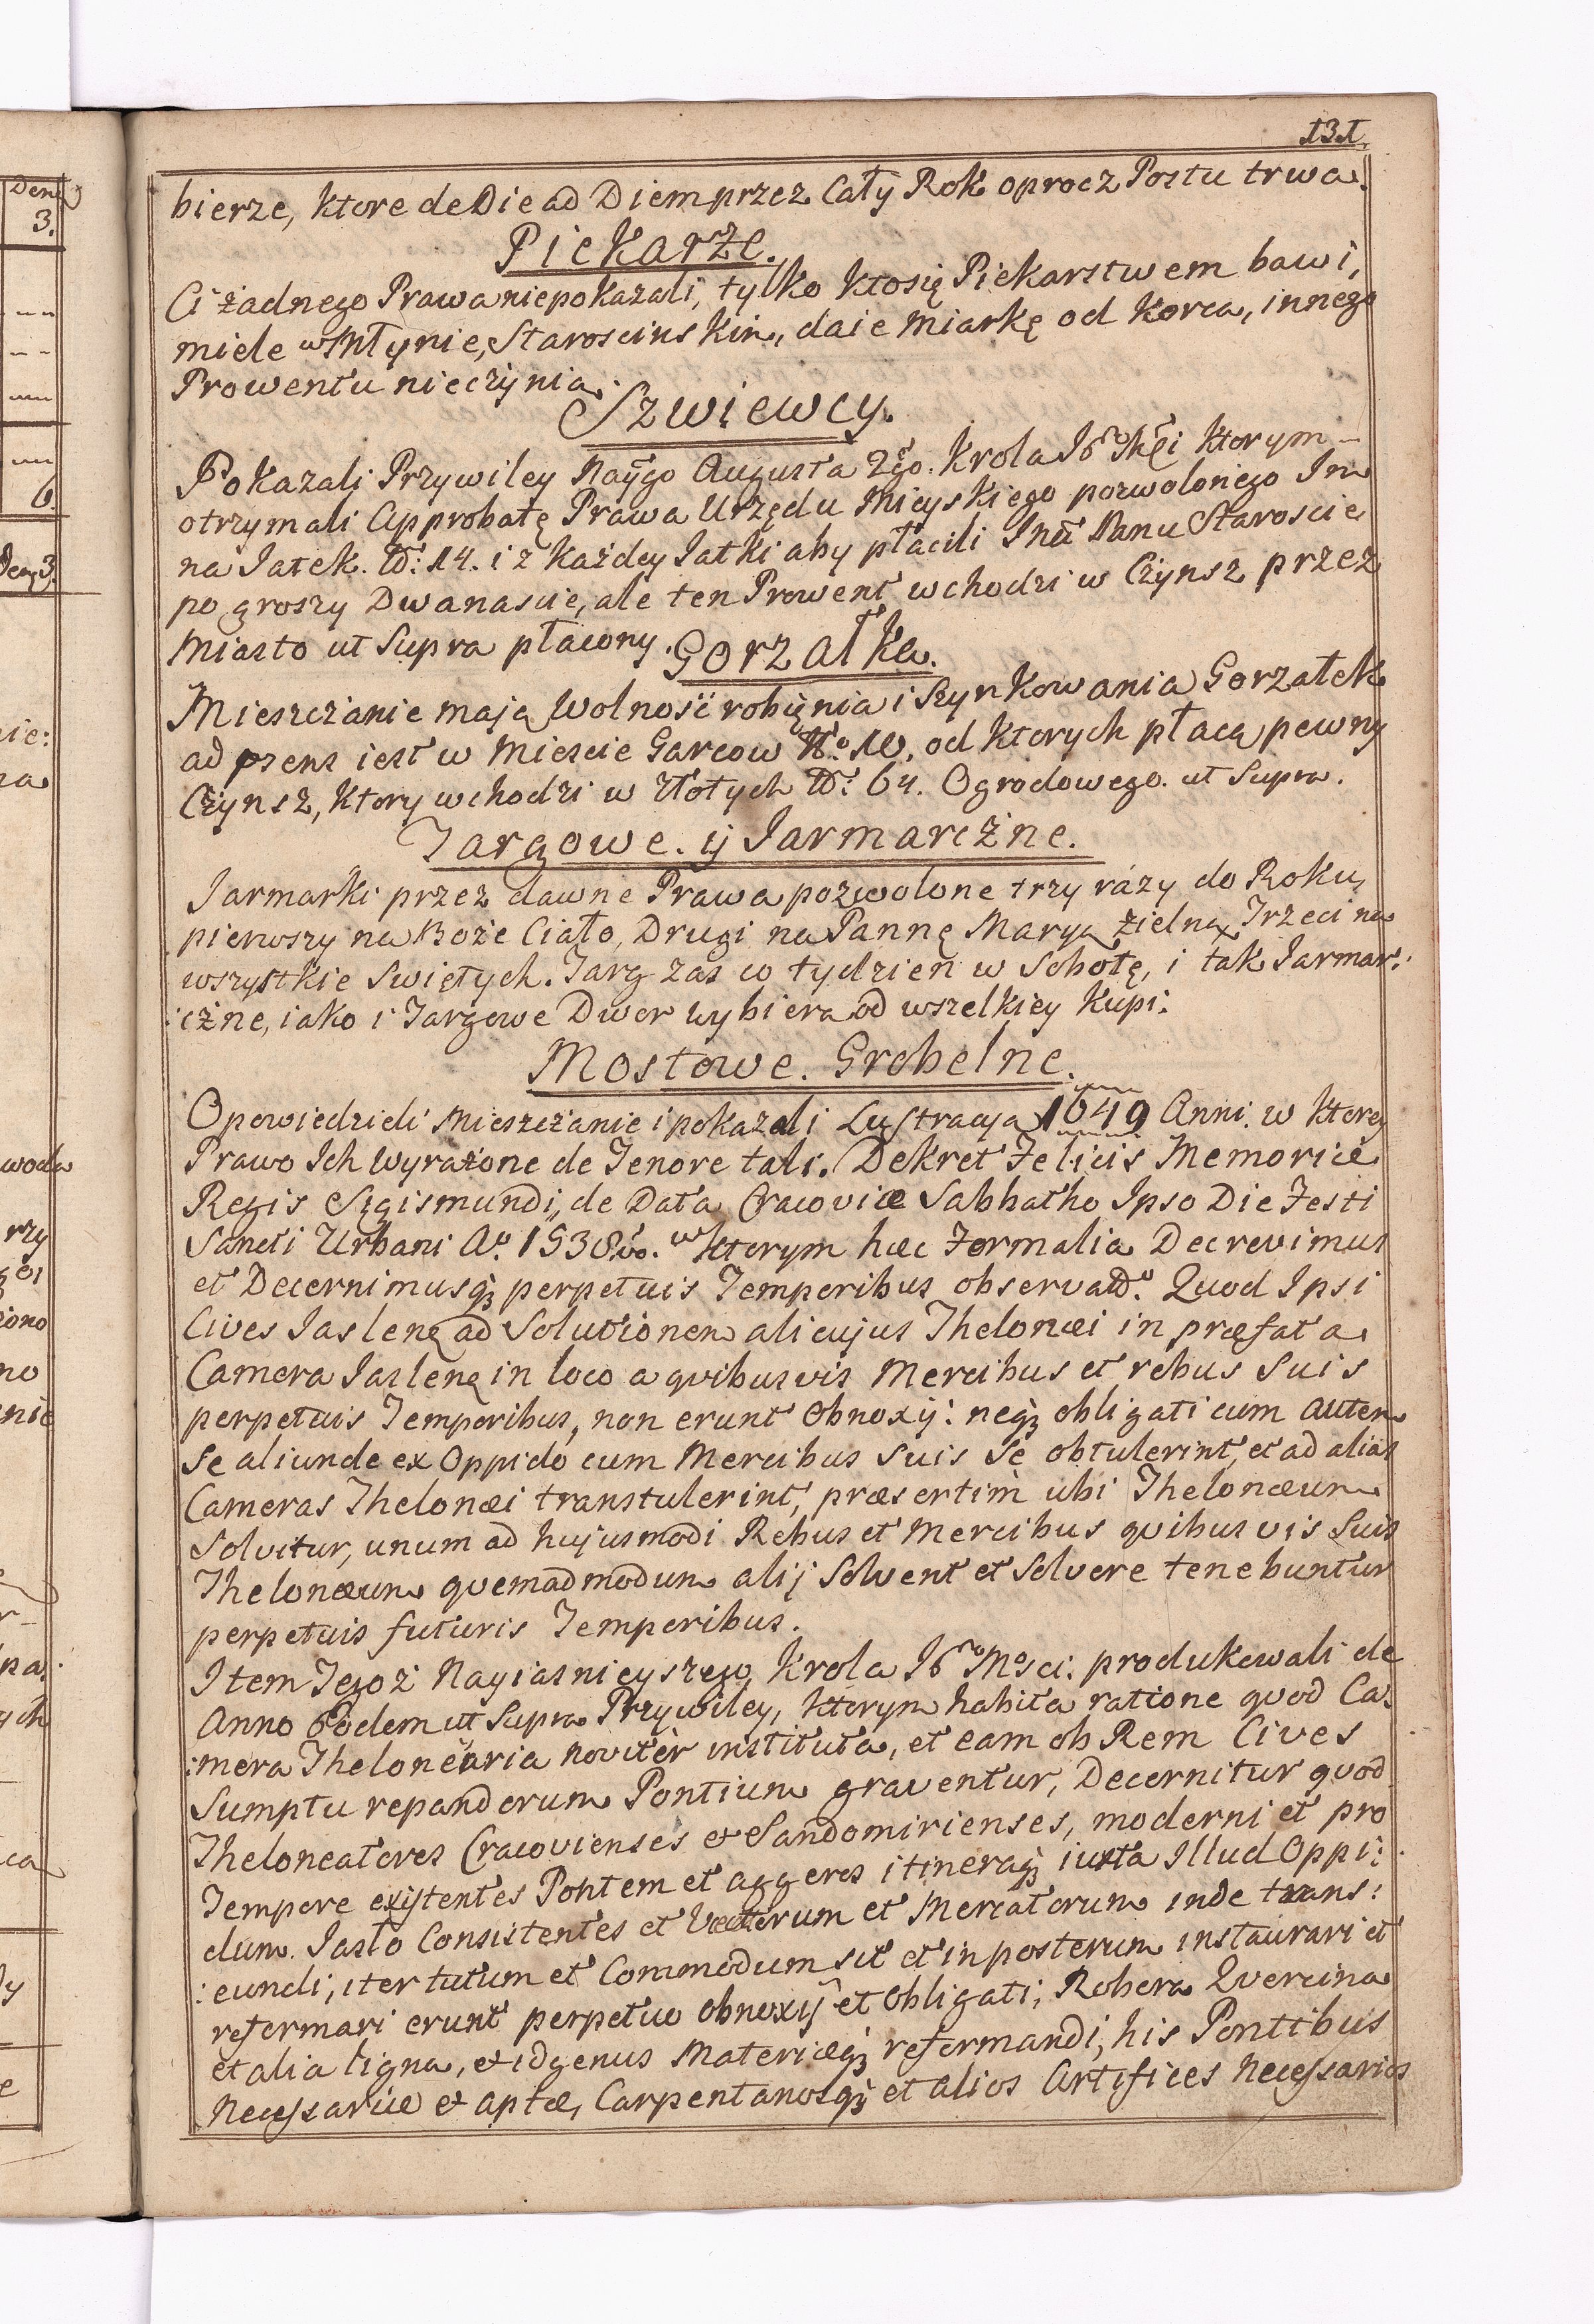 131.
bierze, ktore de Die ad Diem przez Cały Rok oprocz Postu trwa.
Piekarze.
Ci żadnego Prawa niepokazali, tylko kto się Piekarstwem bawi,
miele w Młynie, Staroscinskim, daie Miarkę od Korca, innego
Prowentu nieczynią.
Szwiewcy.
Pokazali Przywiley Nayigo Augusta 2go. Krola Jo Mści ktorym
otrzymali Approbatę Prawa Urzędu Mieyskiego pozwolonego Im
na Jatek. No: 14. i z każdey Jatki aby płacili Imci Panu Staroscie
po groszy Dwanascie, ale ten Prowent wchodzi w Czynsz przez
Miasto ut Supra płacony.
Gorzałka.
Mieszczanie maią Wolność robienia i Szynkowania Gorzałek
ad psens iest w Miescie Garcow No. 10, od ktorych płacą pewny
Czynsz, ktory wchodzi w Złotych No: 64. Ogrodowego. ut Supra.
Targowe. ij Jarmarczne.
Jarmarki przez dawne Prawa pozwolone trzy rázy do Roku,
pierwszy na Boże Ciało, Drugi na Pannę Maryą Zielną, Trzeci na
wszystkie Swiętych. Targ zas co tydzien w Sobotę, i tak Jarmar:
:czne, iako i Targowe Dwor wybiera od wszelkiey Kupi:
Mostowe. Grobelne.
Opowiedzieli Mieszczanie i pokazali Lustracyą 1649 Anni. w ktorey
Prawo Ich Wyrażone de Tenore tali. Dekret Felicis Memoriæ
Regis Sigismundi, de Data Cracoviæ Sabbatho Ipso Die Festi
Sancti Urbani Ao 1538vo. w ktorym hæc Formalia Decrevimus
et Decernimusq; perpetuis Temporibus observando. Quod Ipsi
Cives Jaslenę ad Solutionem alicujus Thelonæi in præfata
Camera Jaslenę in loco a quibusvis Mercibus et rebus Suis
perpetuis Temporibus, non erunt Obnoxij: neq; obligati cum autem
Se aliunde ex Oppido cum Mercibus Suis Se obtulerint, et ad alias
Cameras Thelonæi transtulerint, præsertim ubi Thelonæum
Solvitur, unum ad hujusmodi Rebus et Mercibus quibusvis Suis
Thelonæum quemadmodum alij Solvent et Solvere tenebuntur
perpetuis futuris Temporibus.
Item Tegoż Nayiasnieyszego Krola Jo Mosci: produkowali de
Anno Eodem ut Supra Przywiley, ktorym habita ratione quod Ca:
:mera Thelonearia noviter instituta, et eam ob Rem Cives
Sumptu repandorum Pontium graventur, Decernitur quod
Theloneatores Cracovienses et Sandomirienses, moderni et pro
Tempore existentes Pontem et aggeres itineraq; iuxta Illud Oppi:
dum. Jasło Consistentes et Vectorum et Mercatorum inde trans:
:eundi, iter tutum et Commodum sit et in posterum instaurari et
reformari erunt perpetuo obnoxij et Obligati, Robora Quercina
et alia ligna, et id genus Materiæq; reformandi, his Pontibus
Necessariæ et aptæ, Carpentanosq; et alios Artifices Necessarios